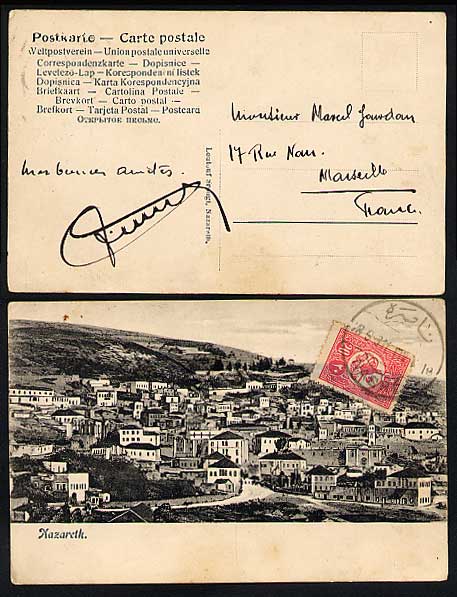 Postkarte — Carte postale
Weltpostverein — Union postale universelle
Correspondenzkarte — Dopisnice —
Levelező-Lap — Korespondenční lístek
Dopisnica — Karta Korespondencyjna
Briefkaart — Cartolina Postale —
Brevkort — Carto postal —
Brefkort — Tarjeta Postal — Postcard
Открытое письмо.
Nazareth.
Monsieur Marcel Jourdan
17 Rue Nau.
Marseille
France.
Nazareth.
20